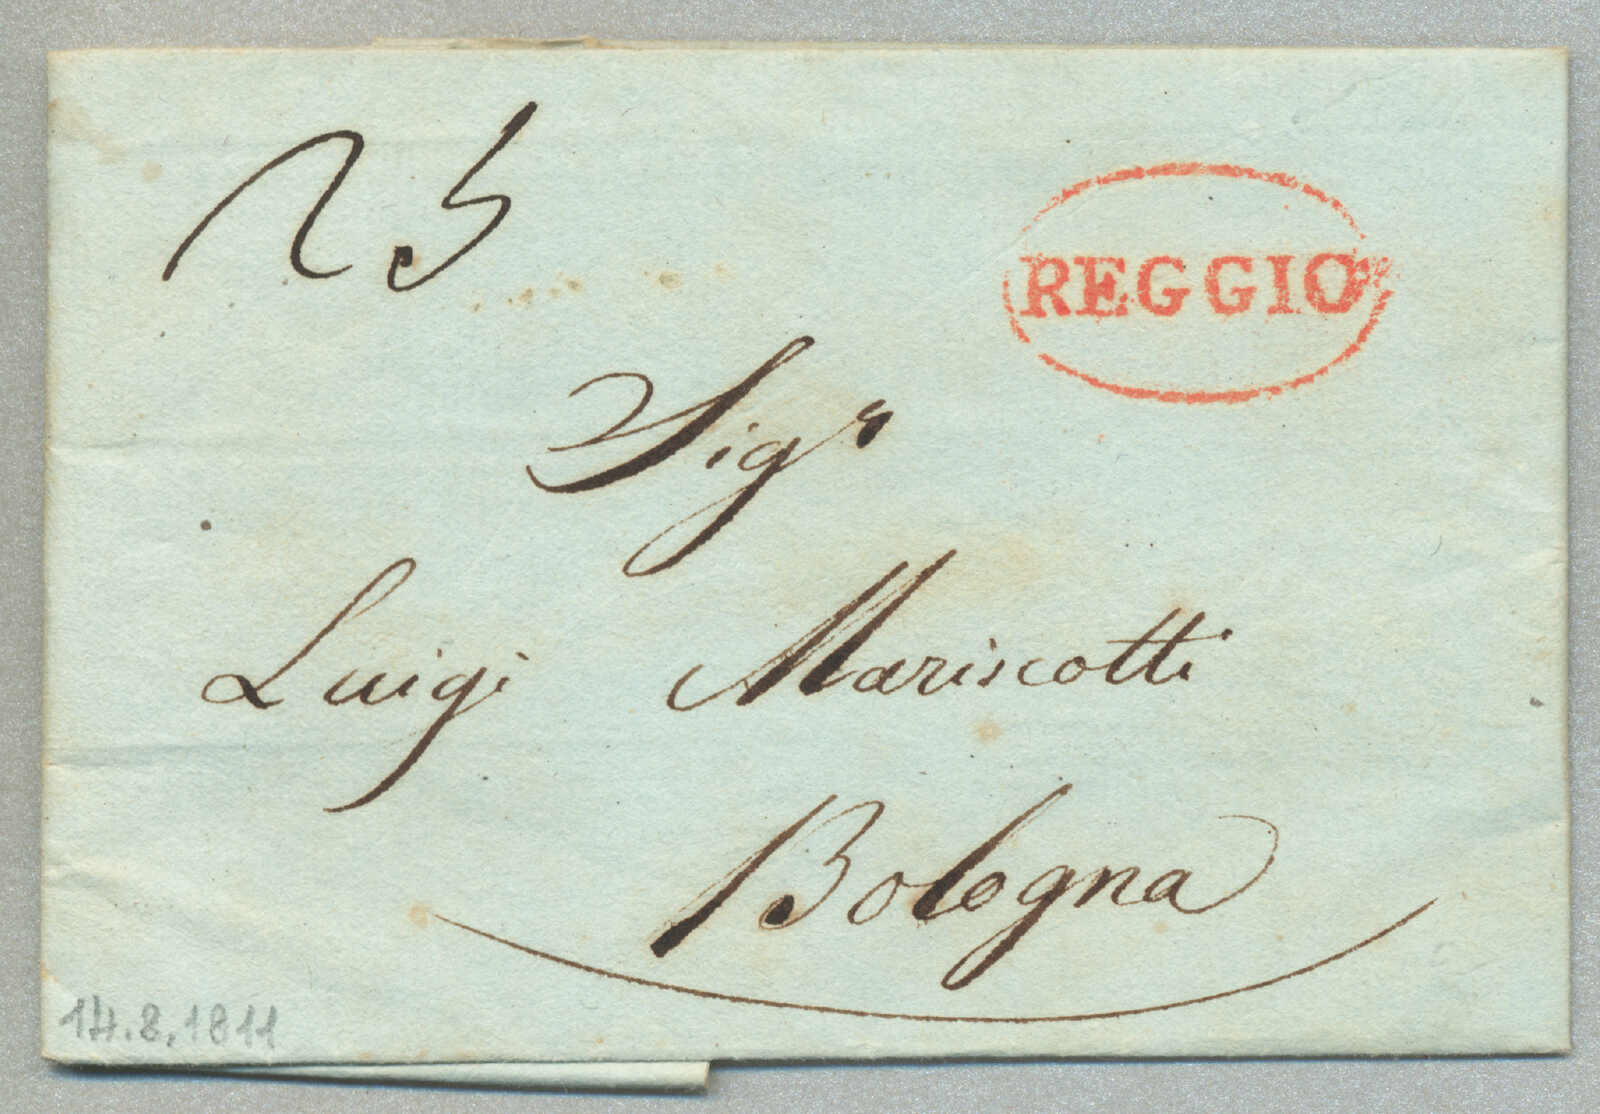 25
REGGIO
Sigr
Luigi Mariscotti
Bologna
14.8.1811